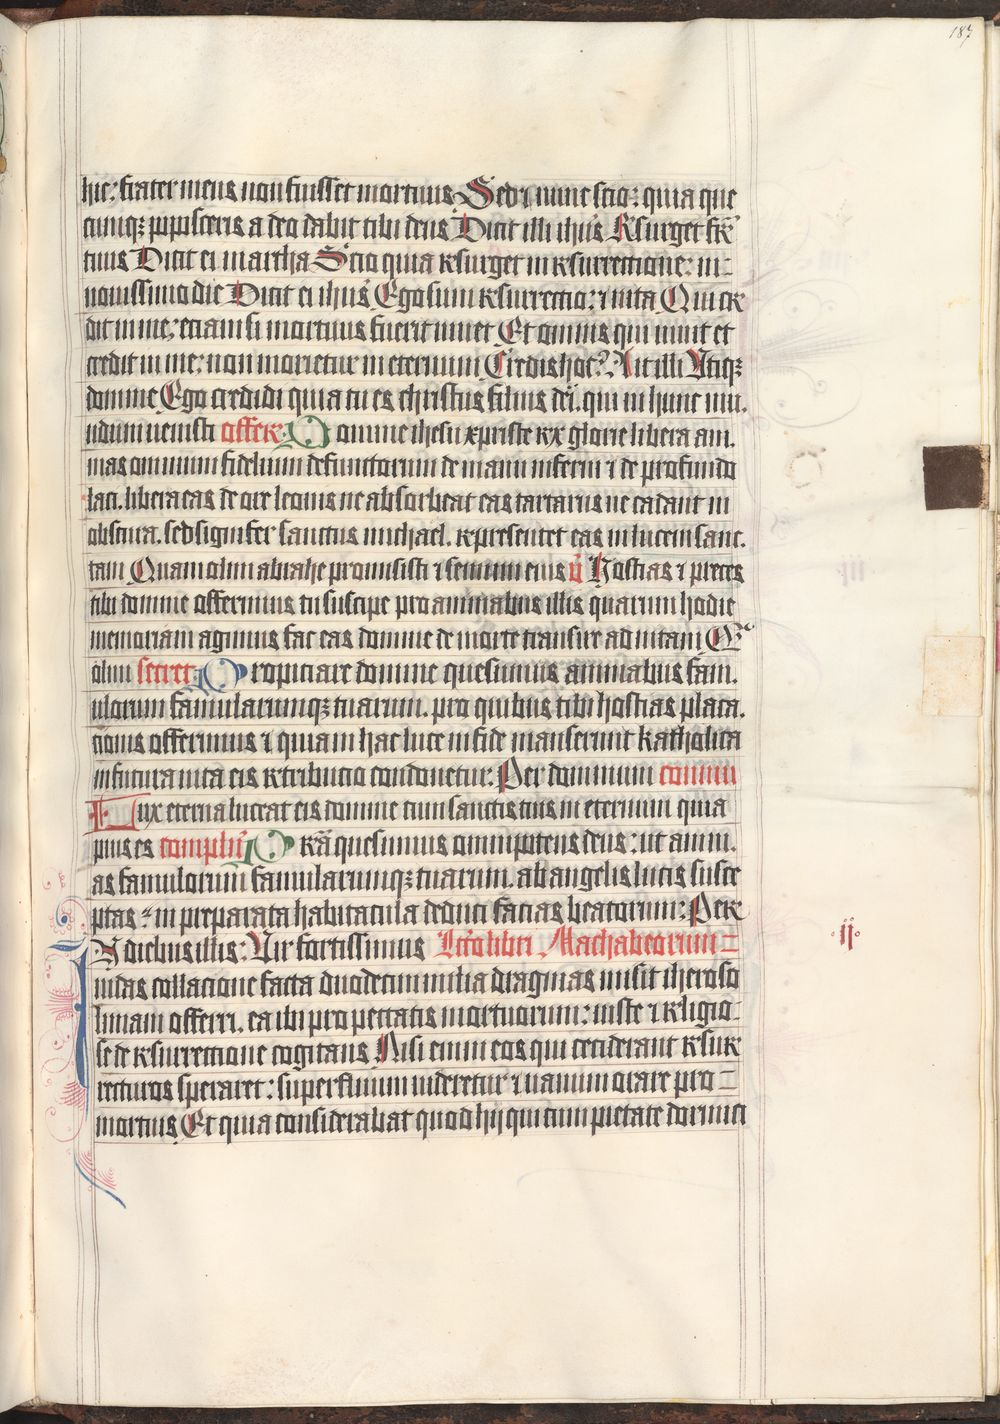 187
hic: frater meus non fuisset mortuus Sed ⁊ nunc scio: quia que
cumq; poposceris a deo dabit tibi deus Dicit illi ihūs Resurget fr̄
tuus Dicit ei martha Scio quia resurget in resurrectione: in
nouissimo die Dicit ei ihūs Ego sum resurrectio: ⁊ uita Qui cre
dit in me: etiam si mortuus fuerit uiuet Et omnis qui uiuit et
credit in me: non morietur in eternum Credis hoc? Ait illi Utiq;
domine Ego credidi quia tu es christus filius dei. qui in hunc mu.
ndum uenisti offer. Domine ihesu xpriste rex glorie libera am.
mas omnium fidelium defunctorum de manu inferni ⁊ de profundo
laci. libera eas de ore leonis ne absorbeat eas tartarus ne cadant in
obscura. sed signifer sanctus michael. representet eas in lucem sanc.
tam Quam olim abrahe promisisti ⁊ semini eius v̄ Hostias ⁊ preces
tibi domine offerimus tu suscipe pro animabus illis quarum hodie
memoriam agimus fac eas domine de morte transire ad uitam Q̄
olim secret. Propiciare domine quesumus animabus fam.
ulorum famularumq; tuarum. pro quibus tibi hostias placa.
tionis offerimus ⁊ quia in hac luce in fide manserunt katholica
in futura uita eis retributio condonetur: Per dominum commu
Lux eterna luceat eis domine cum sanctis tuis in eternum quia
pius es compl̄ū Prā quesumus omnipotens deus: ut anim.
as famulorum famularumq; tuarum. ab angelis lucis susce
ptas: in preparata habitacula deduci facias beatorum: Per
In diebus illis: Vir fortissimus Lc̄o libri Machabeorum
iudas collacione facta duodecim milia dragmas misit iheroso
limam offerri. ea ibi pro peccatis mortuorum: iuste ⁊ religio
se de resurrectione cogitans Nisi enim eos qui ceciderant resur
recturos speraret: superfluum uideretur ⁊ uanum orare pro
mortuis Et quia considerabat quod hij qui cum pietate dormici
.ii.